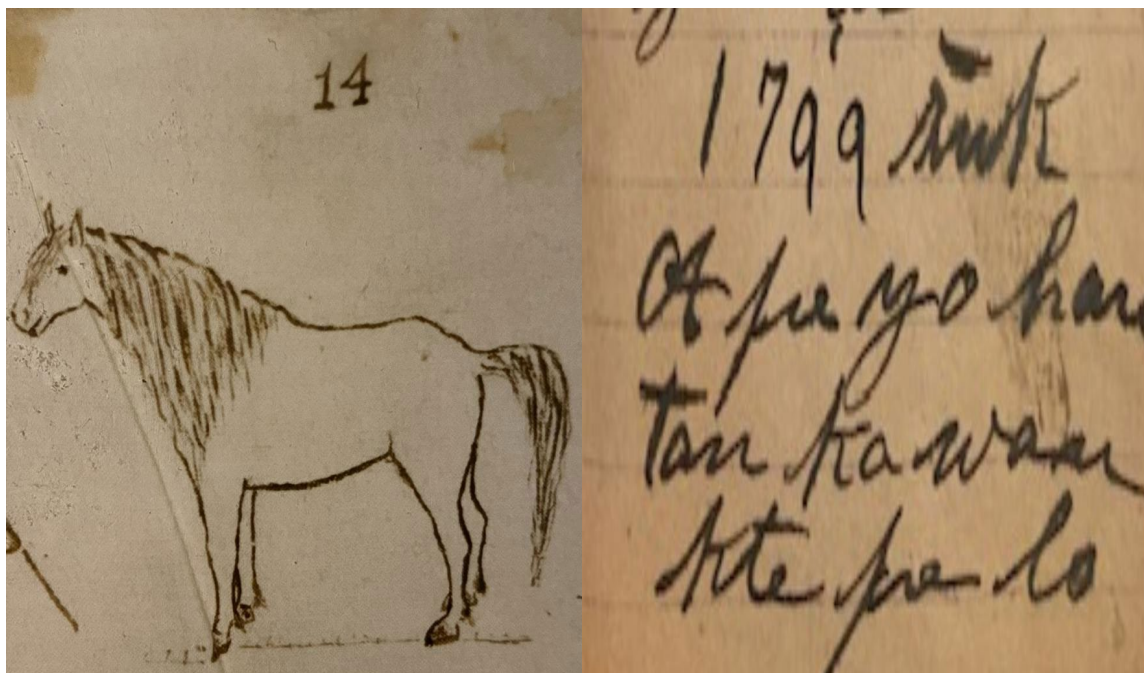 14
1799 šuk
A pe yo han
tan ka wan
kte pe lo